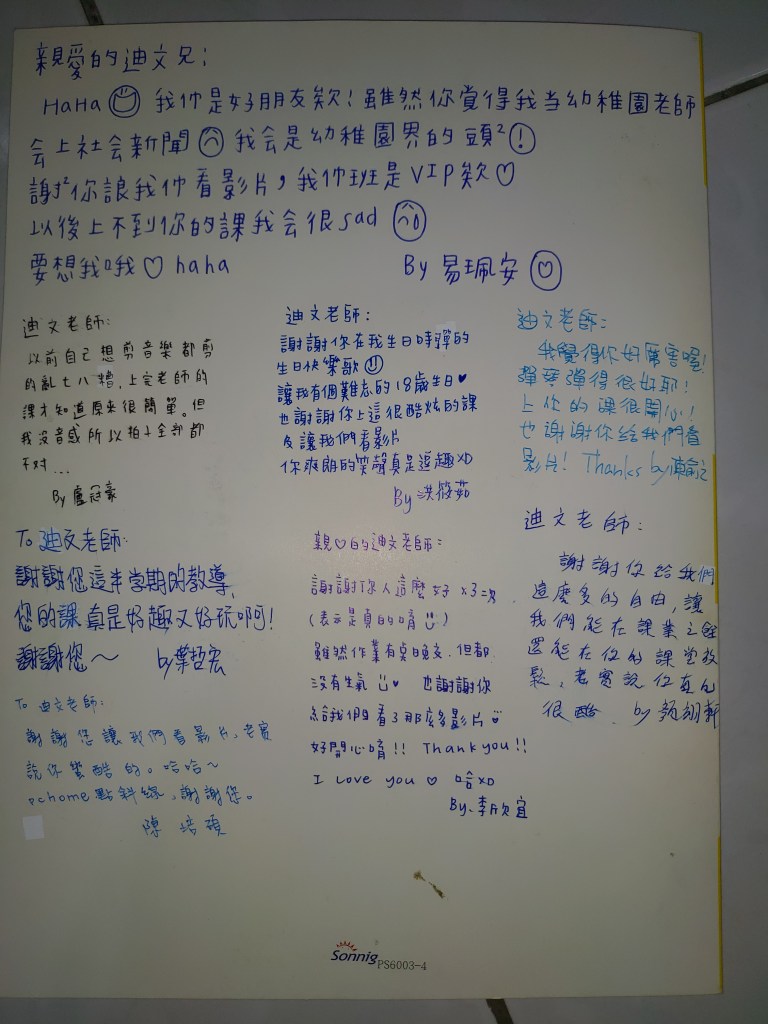 親愛的迪文兄:
HaHa 我们是好朋友欸!雖然你覺得我当幼稚園老師
会上社会新聞 我会是幼稚園界的頭²!
謝²你讓我们看影片,我们班是VIP欸♡
以後上不到你的課我会很sad
要想我哦♡ haha By 易珮安
迪文老師:
以前自己想剪音樂都剪
的亂七八糟,上完老師的
課才知道原來很簡單。但
我沒音感所以拍子全部都
不对...
By 盧冠豪
迪文老師:
謝謝你在我生日時彈的
生日快樂歌
讓我有個難忘的18歲生日♥
也謝謝你上這很酷炫的課
及讓我們看影片
你爽朗的笑聲真是逗趣XD
By 洪筱茹
迪文老師:
我覺得你好厲害喔!
彈琴彈得很好耶!
上你的課很開心!
也謝謝你給我們看
影片! Thanks by
To 迪文老師:
謝謝您這半學期的教導,
您的課真是好趣又好玩啊!
謝謝您~ by葉哲宏
親♡的迪文老師:
謝謝你人這麼好 x3=次
(表示是真的唷)
雖然作業有点晚交,但都
沒有生氣 ♥ 也謝謝你
給我們看了那麼多影片
好開心唷!! Thank you!!
I love you ♡ 哈XD
By.李欣宜
迪文老師:
謝謝你給我們
這麼多的自由,讓
我們能在課業之餘
還能在你的課堂放
鬆,老實說你真的
很酷. by 翔軒
To 迪文老師:
謝謝您讓我們看影片,老實
說你蠻酷的。哈哈~
pchome點斜線,謝謝您。
陳培碩
Sonnig PS6003-4